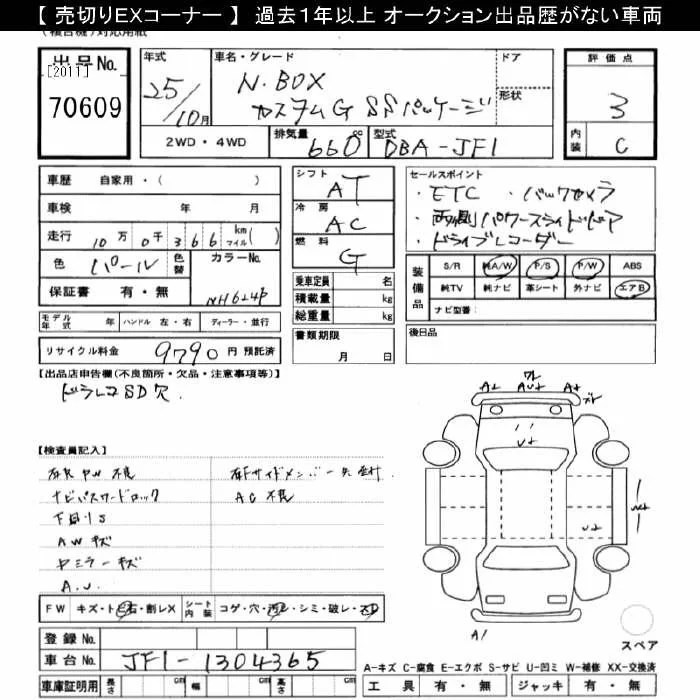 【 売切りEXコーナー 】 過去1年以上 オークション出品歴がない車両
(複合機)対応用紙
出品No.
[2011]
70609
年式
25/10月
車名・グレード
N・BOX
カスタムG SSパッケージ
ドア
形状
2WD・4WD
排気量
660
cc
型式
DBA-JF1
評価点
3
内装
C
車歴 自家用・( )
車検 年 月
走行 10万0千366 km マイル( )
色 パール 色替 カラーNo.
NH624P
保証書 有・無
モデル年式 年 ハンドル 左・右 ディーラー・並行
リサイクル料金 9790 円 預託済
シフト
AT
冷房
AC
燃料
G
乗車定員 名
積載量 kg
総重量 kg
書類期限
月 日
セールスポイント
・ETC ・バックカメラ
・両側パワースライドドア
・ドライブレコーダー
装備品
S/R 純A/W P/S P/W ABS
純TV 純ナビ 革シート 外ナビ エアB
ナビ型番:
後日品
【出品店申告欄(不良箇所・欠品・注意事項等)】
ドラレコSD欠
【検査員記入】
ナビパスワードロック
AC不良
下回りS
AWキズ
ドミラーキズ
A.U.
FW キズ・トビ石・割レX シート内装 コゲ・穴・汚レ・シミ・破レ・
登録No.
車台No. JF1-1304365
車庫証明用 長さ cm 幅 cm 高さ cm
A+ AU+ A+
U+
U+
A1
スペア
A-キズ C-腐食 E-エクボ S-サビ U-凹ミ W-補修 XX-交換済
工具 有・無 ジャッキ 有・無